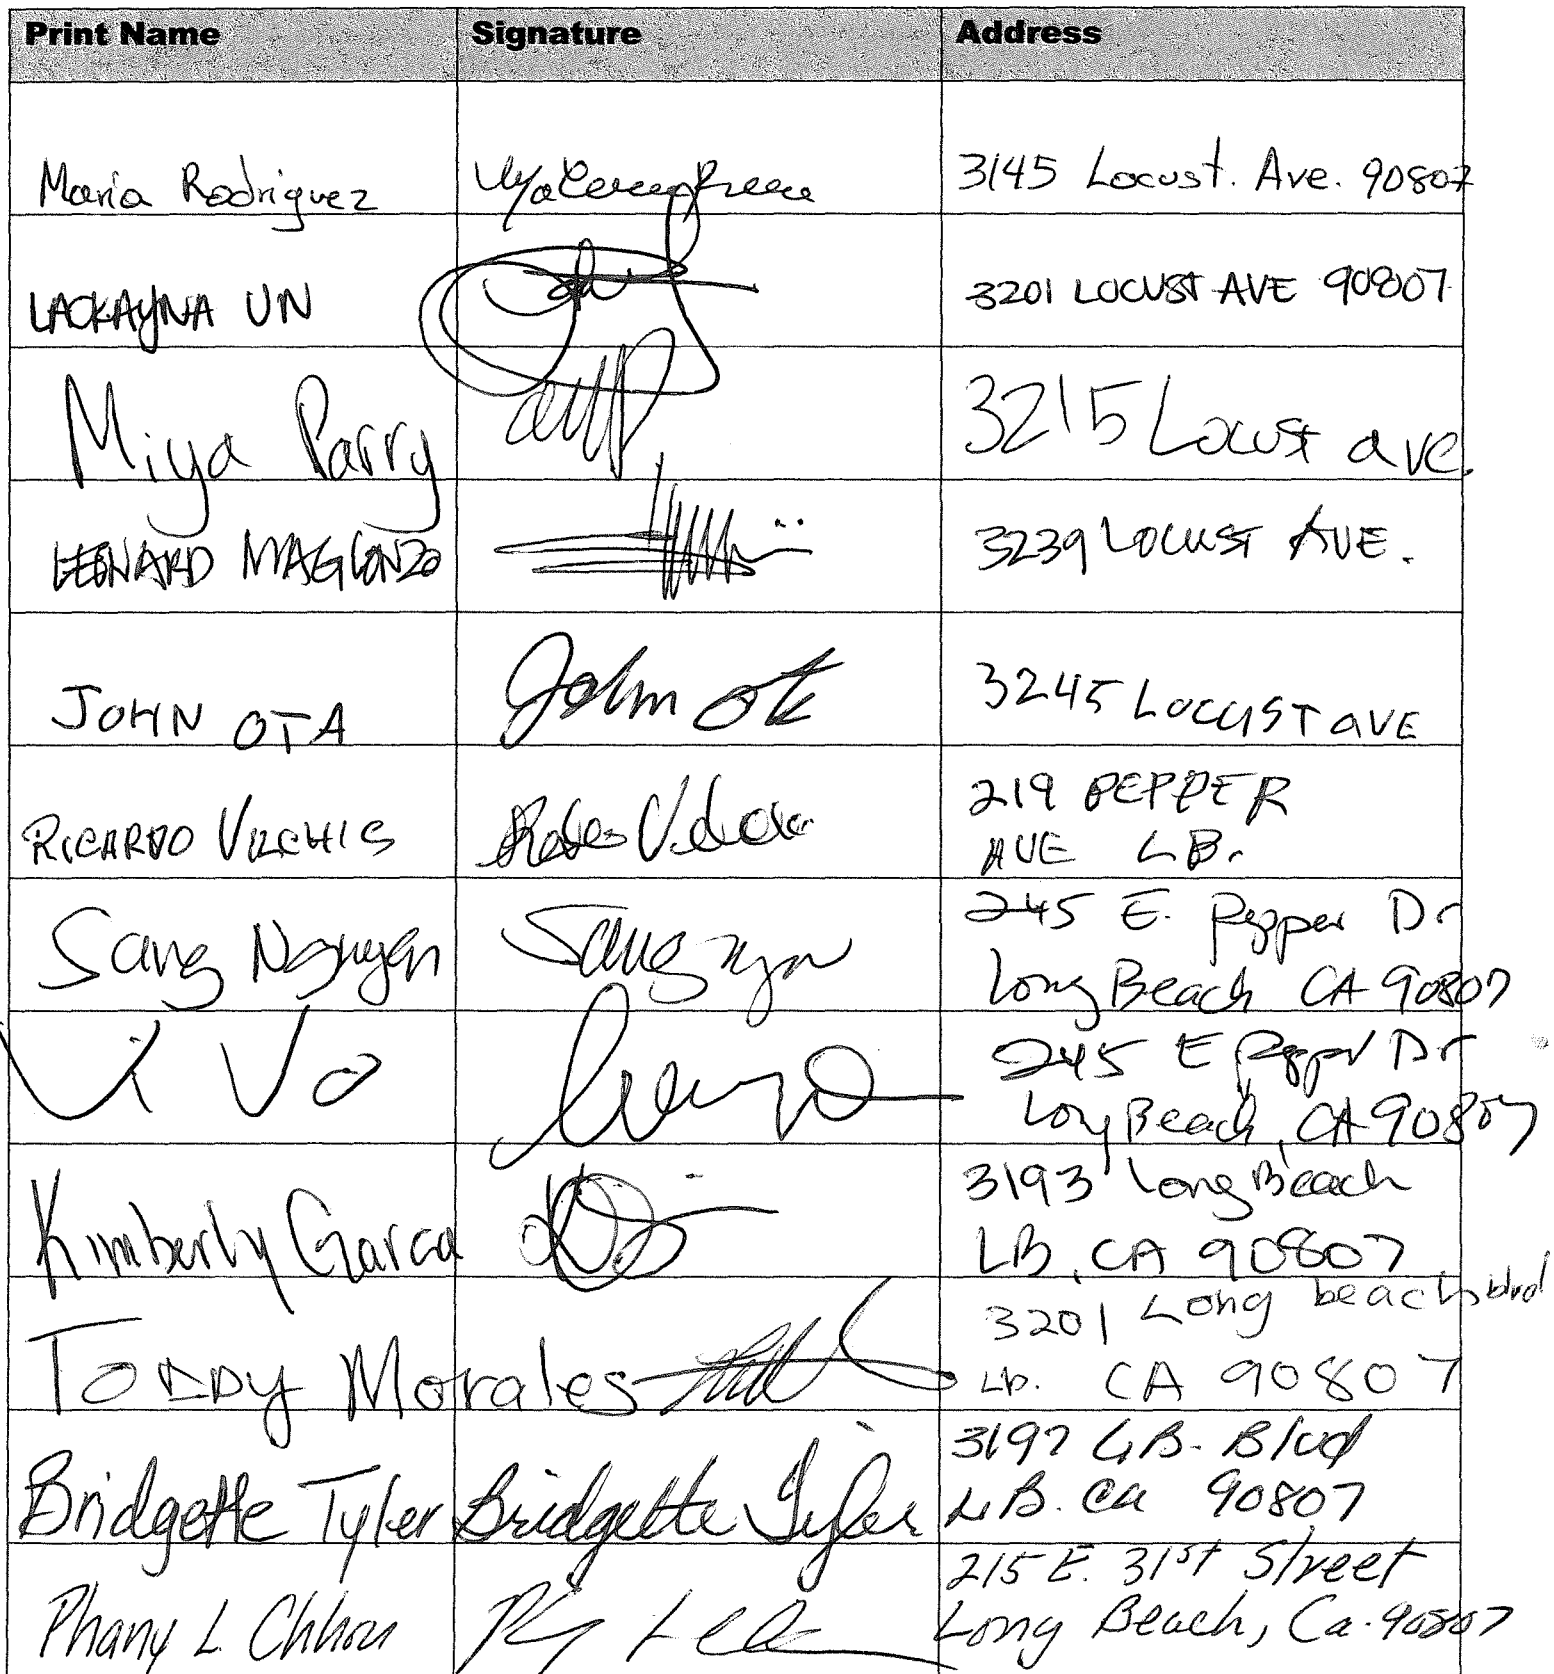 Print Name Signature Address
Maria Rodriguez 3145 Locust. Ave. 90807
LACKAYNA UN 3201 LOCUST AVE 90807
Miya Parry 3215 Locust ave.
LEONARD MAGLONZO 3239 LOCUST AVE.
JOHN OTA John Ota 3245 LOCUST aVE
RICARDO VILCHIS 219 PEPPER
AVE LB.
Sang Nguyen Sang 245 E. Pepper Dr
Long Beach CA 90807
Vi Vo 245 E Pepper Dr
Long Beach, CA 90807
Kimberly Garcia 3193 Long Beach
LB, CA 90807
TODDy Morales 3201 Long beach blvd
Lb. CA 90807
Bridgette Tyler Bridgette Tyler 3197 L.B. Blvd
L.B. Ca 90807
Phany L. Chhou 215 E. 31st Street
Long Beach, Ca. 90807